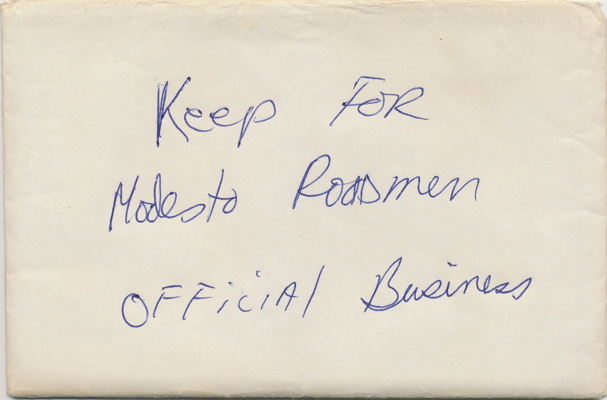 Keep FOR
Modesto Roadsmen
OFFiciAl Business